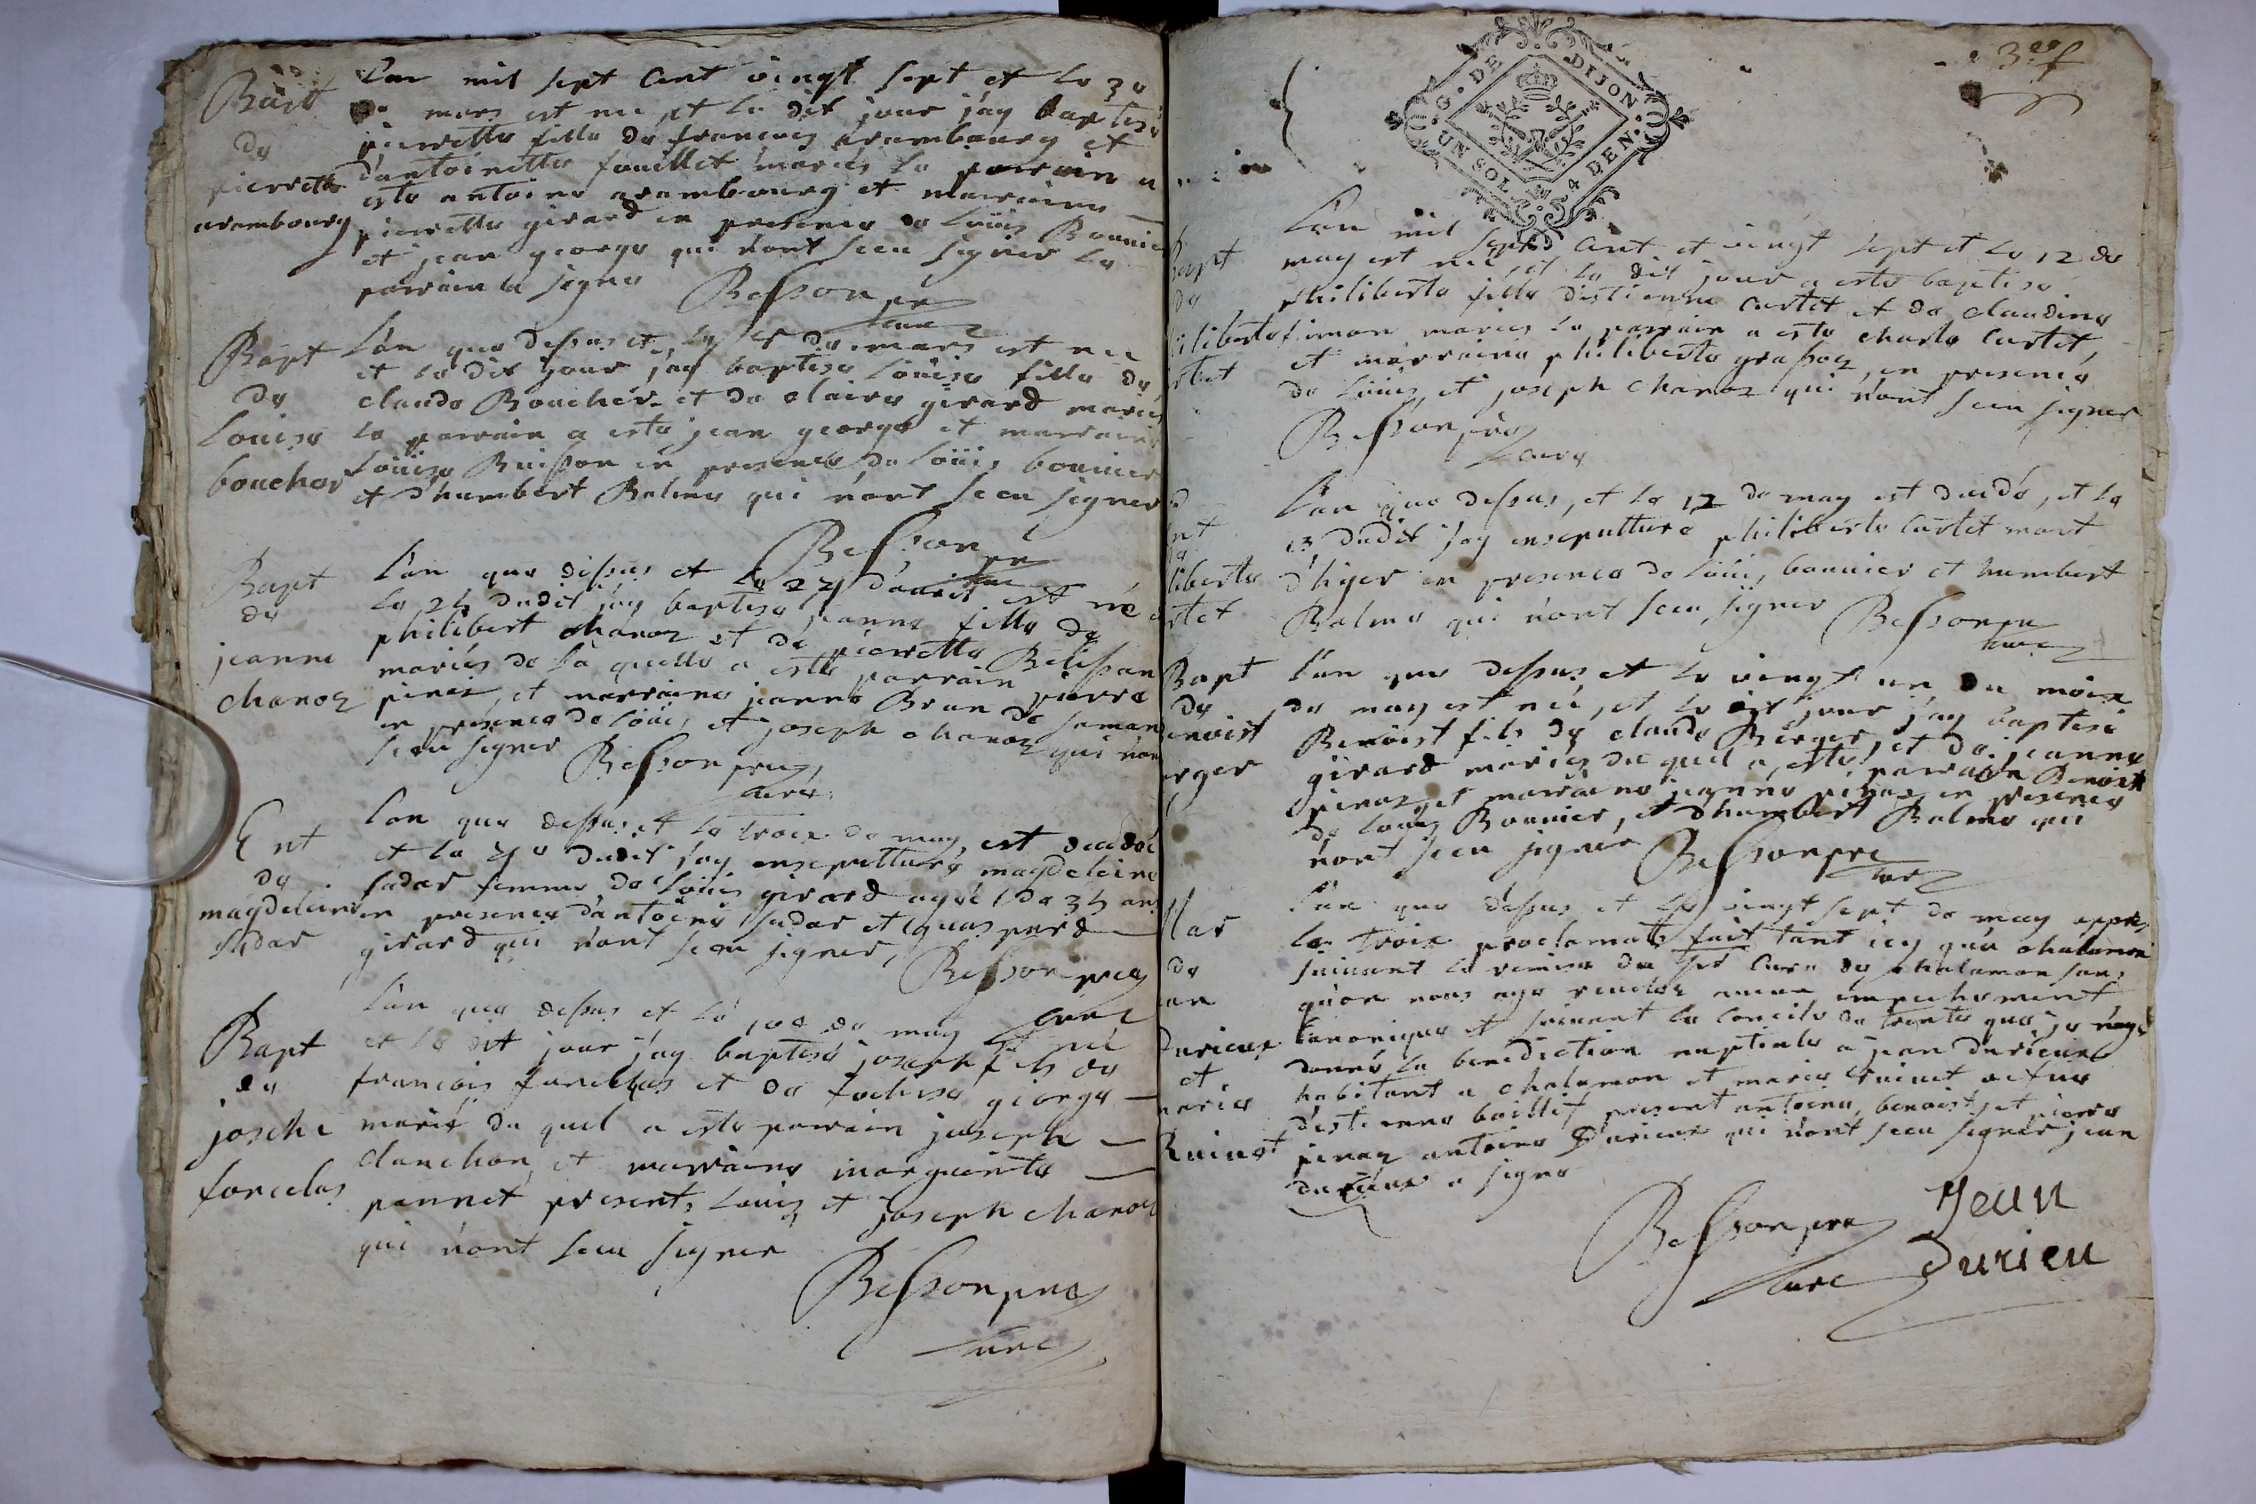 Bapt
de
pierrette
arambourg
L'an mil sept cent vingt sept et le 30
de mars est née et le dit jour j'ay baptisé
pierrette fille de francois arambourg et
d'antoinette fouillet mariés le parrain a
esté antoine arambourg et marraine
pierrette girard en presence de Loüis Bonnier
et jean george qui n'ont sceu signer le
parrain a signé
Besson pre
curé
Bapt
de
Louise
boucher
L'an que dessus et le de mars est née
et le dit jour j'ay baptisé Loüise fille de
claude Boucher et de claire girard mariés
le parrain a esté jean george et marraine
Loüise Buisson en presence de Loüis bonnier
et d'humbert Balme qui n'ont sceu signer
Besson pre
curé
Bapt
de
jeanne
chanoz
L'an que dessus et le 24 d'avril est née
le 25 dudit j'ay baptisé jeanne fille de
philibert chanoz et de pierrette Belisson
mariés de la quelle a esté parrain pierre
pinaz et marraine jeanne Brun de
en presence de Loüis et joseph chanoz qui n'ont
sceu signer
Besson pre
curé
Ent
de
magdeleine
sudar
L'an que dessus et le trois de may est decedée
et le 4e dudit j'ay ensepulturé magdeleine
sudar femme de Loüis girard agée de 35 ans
en presence d'antoine sudar et gaspard
girard qui n'ont sceu signer
Besson pre
curé
Bapt
de
josehe
forcelas
L'an que dessus et le 10e de may né
et le dit jour j'ay baptisé joseph fils de
francois forcelas et de george
mariés du quel a esté parrain joseph
clanchon et marraine marguerite
pannet present Louis et joseph chanoz
qui n'ont sceu signer
Besson pre
curé
G. DE DIJON
UN SOL 4 DEN.
Bapt
de
philiberte
L'an mil sept cent et vingt sept et le 12 de
may est née et le dit jour a esté baptisé
philiberte fille d'estienne curtet et de claudine
simon mariés le parrain a esté charle curtet,
et marraine philiberte grassoz, en presence
de Loüis, et joseph chanoz qui n'ont sceu signer
Besson pre
curé
L'an que dessus, et le 12 de may est decedé, et le
13 dudit j'ay ensepulturé philiberte curtet mort
d'hyer en presence de Loüis, bonnier et humbert
Balme qui n'ont sceu signer
Besson pre
curé
Bapt
de
benoist
berger
L'an que dessus et le vingt un du mois
de may est né, et le dit jour j'ay baptisé
Benoist fils de claude Berger, et de jeanne
girard mariés du quel a esté parrain Benoist
pinaz et marraine jeanne pinaz en presence
de Loüis Bonnier, et d'humbert Balme qui
n'ont sceu signer
Besson pre
curé
Mar
de
jean
durieux
et
marie
Ruinet
L'an que dessus et le vingt sept de may apprés
les trois proclamats fait tant icy qu'a chalamon
suivant la remise du sr curé de chalamon sans
qu'on nous aye revelé aucun empechement
canonique et suivant le concile de trente que je n'aye
donné la benediction nuptiale a jean durieux
habitant a chalamon et marie Ruinet
d'estienne baillif present antoine, benoist, et pierre
pinaz antoine Durieux qui n'ont sceu signer jean
durieux a signé
Besson pre
curé
Jean
durieu